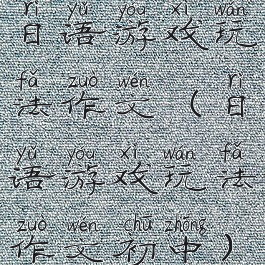 rì yǔ yóu xì wán
日语游戏玩
fǎ zuò wén rì
法作文（日
yǔ yóu xì wán fǎ
语游戏玩法
zuò wén chū zhōng
作文初中）